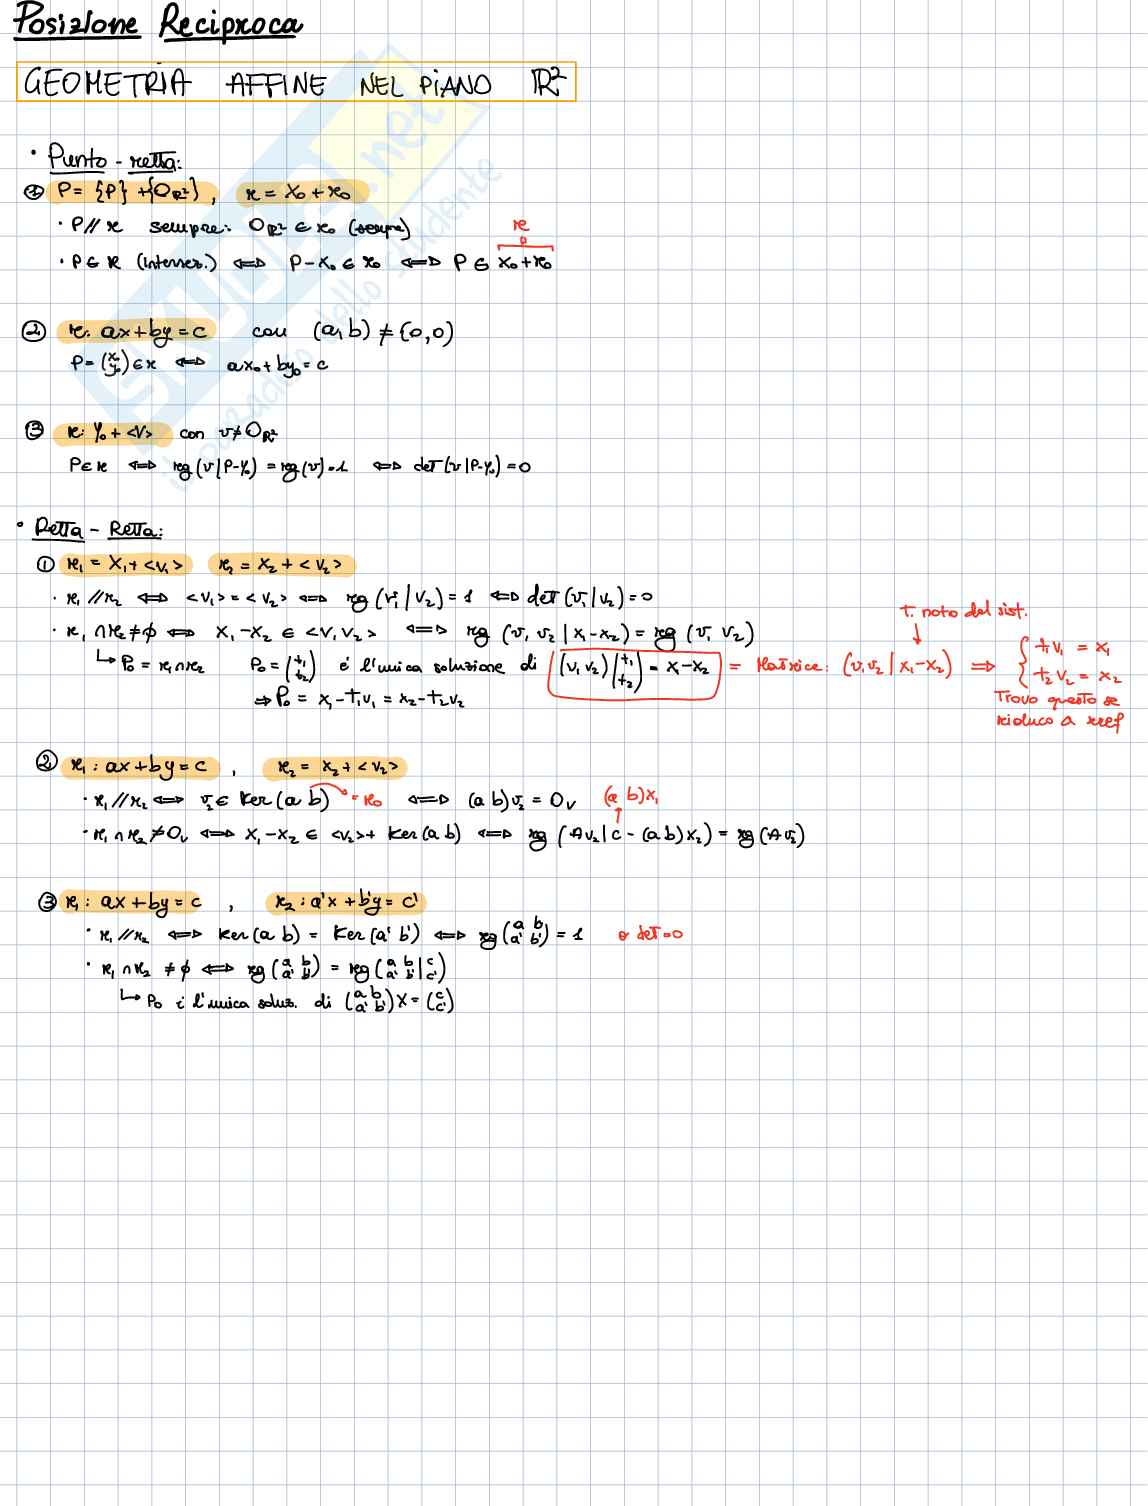 Posizione Reciproca
GEOMETRIA AFFINE NEL PIANO ℝ²
• Punto - retta:
① P = {P} + {O_ℝ²}, r = X₀ + r₀
• P // r sempre: O_ℝ² ∈ r₀ (sempre)
r
• P ∈ r (intersez.) ⟺ P - X₀ ∈ r₀ ⟺ P ∈ X₀ + r₀
② r: ax + by = c con (a, b) ≠ {0,0)
P = (x₀ y₀) ∈ r ⟺ ax₀ + by₀ = c
③ r: Y₀ + <V> con v ≠ O_ℝ²
P ∈ r ⟺ rg (v | P - Y₀) = rg (v) = 1 ⟺ det (v | P - Y₀) = 0
• Retta - Retta:
① r₁ = X₁ + <V₁> r₂ = X₂ + <V₂>
• r₁ // r₂ ⟺ <V₁> = <V₂> ⟺ rg (V₁ | V₂) = 1 ⟺ det (V₁ | V₂) = 0
T. noto del sist.
• r₁ ∩ r₂ ≠ ∅ ⟺ X₁ - X₂ ∈ <V₁ V₂> ⟺ rg (V₁ V₂ | X₁ - X₂) = rg (V₁ V₂)
↳ P₀ = r₁ ∩ r₂ P₀ = (t₁ t₂) è l'unica soluzione di (V₁ V₂) (t₁ t₂) = X₁ - X₂ = Matrice: (V₁ V₂ | X₁ - X₂) ⟹ { t₁V₁ = X₁
t₂V₂ = X₂
⇒ P₀ = X₁ - t₁V₁ = X₂ - t₂V₂
Trovo questo se
riduco a rref
② r₁: ax + by = c, r₂ = X₂ + <V₂>
• r₁ // r₂ ⟺ V₂ ∈ Ker (a b) = r₀ ⟺ (a b) V₂ = O_V
(a b) X₁
• r₁ ∩ r₂ ≠ O_V ⟺ X₁ - X₂ ∈ <V₂> + Ker (a b) ⟺ rg (AV₂ | c - (a b) X₂) = rg (AV₂)
③ r₁: ax + by = c, r₂: a'x + b'y = c'
• r₁ // r₂ ⟺ Ker (a b) = Ker (a' b') ⟺ rg (a b a' b') = 1 o det = 0
• r₁ ∩ r₂ ≠ ∅ ⟺ rg (a b a' b') = rg (a b a' b' | c c')
↳ P₀ è l'unica soluz. di (a b a' b') X = (c c')
SKUOLA.net
il paradiso dello studente